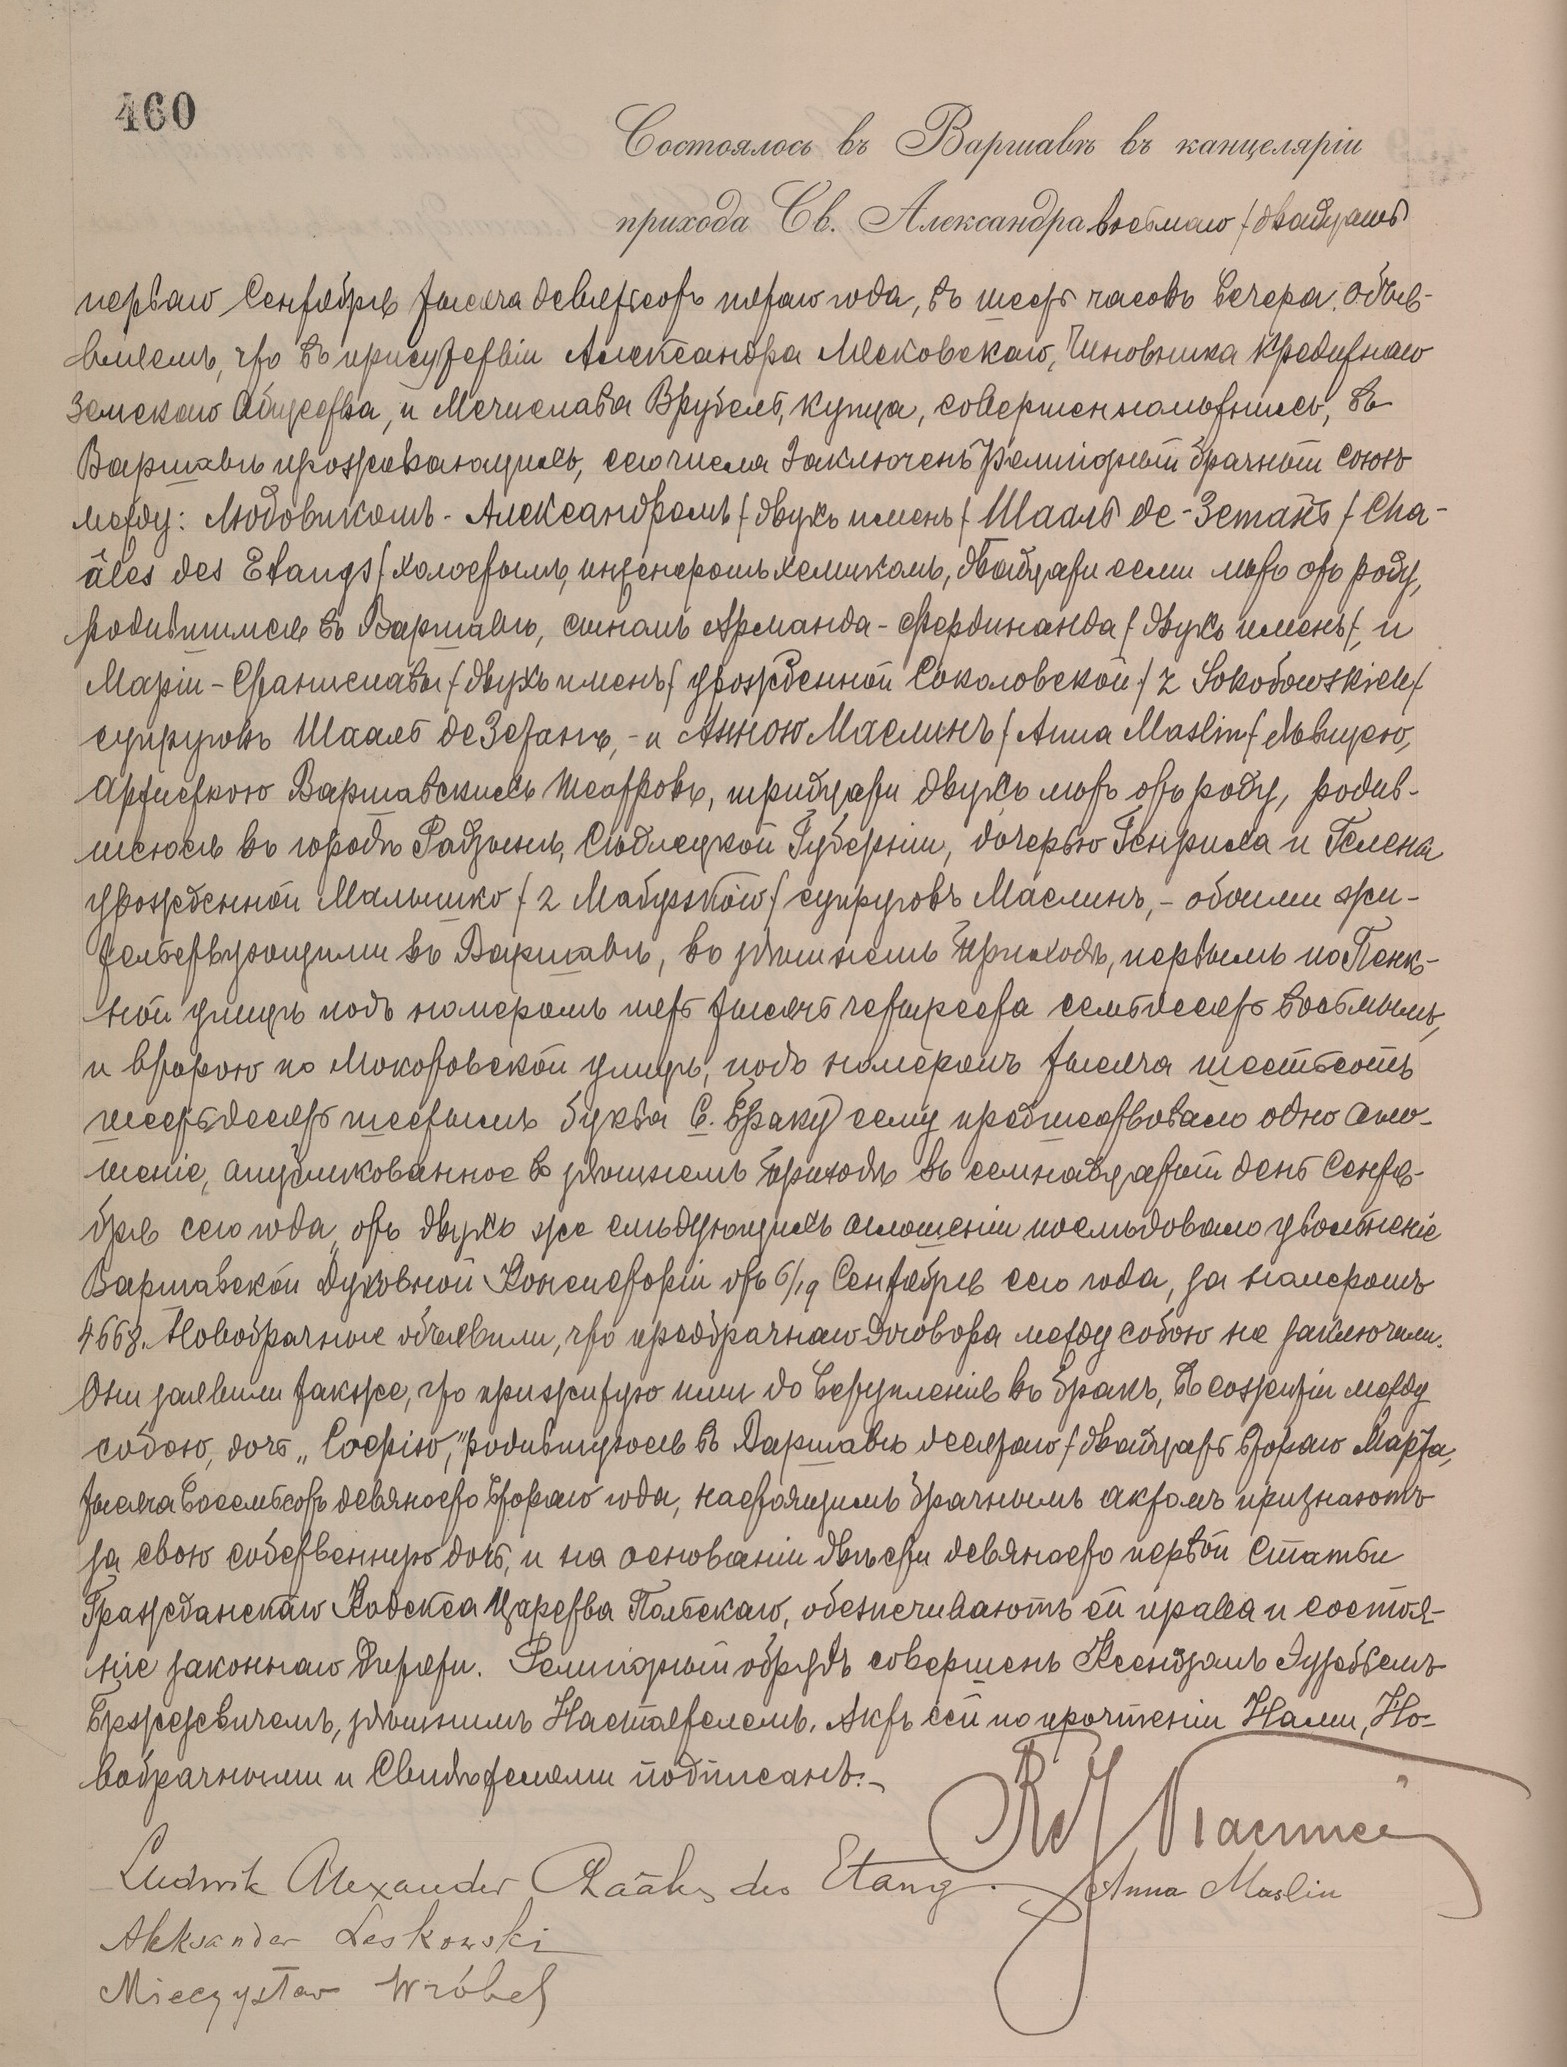 460
Состоялось въ Варшавѣ въ канцеляріи
прихода Св. Александра восьмаго / двадцать
перваго Сентября тысяча девятьсотъ пятаго года, въ шесть часовъ вечера. Объя-
вляемъ, что въ присутствіи Александра Лясковскаго, Чиновника Кредитнаго
Земскаго Общества, и Мечислава Врубель, купца, совершеннолѣтнихъ, въ
Варшавѣ проживающихъ, сего числа заключенъ религіозный брачный союзъ
между: Людовикомъ-Александромъ / двухъ именъ / Шааль де-Зетангъ / Cha-
âles des Etangs / холостымъ, инженеромъ химикомъ, двадцати семи лѣтъ отъ роду,
родившимся въ Варшавѣ, сыномъ Арманда-Фердинанда / двухъ именъ /, и
Маріи-Станиславы / двухъ именъ / урожденной Соколовской / z Sokołowskich /
супруговъ Шааль де Зетангъ, - и Анною Маслинъ / Anna Maslin / дѣвицею,
артисткою Варшавскихъ театровъ, тридцати двухъ лѣтъ отъ роду, родив-
шеюся въ городѣ Радзынѣ, Сѣдлецкой Губерніи, дочерью Генриха и Гелены
урожденной Малышко / z Małyszków / супруговъ Маслинъ, - обоими жи-
тельствующими въ Варшавѣ, въ здѣшнемъ приходѣ, первымъ по Пенк-
ной улицѣ подъ номеромъ пять тысячъ четыреста семьдесятъ восьмымъ,
и второю по Мокотовской улицѣ, подъ номеромъ тысяча шестьсотъ
шестьдесятъ шестымъ буква С. Браку сему предшествовало одно огло-
шеніе, опубликованное въ здѣшнемъ приходѣ въ семнадцатый день Сентя-
бря сего года, отъ двухъ же слѣдующихъ оглошеній послѣдовало увольненіе
Варшавской Духовной Консисторіи отъ 6/19 Сентября сего года, за номеромъ
4663. Новобрачные объявили, что предбрачнаго договора между собою не заключали.
Они заявили также, что прижитую ими до вступленія въ бракъ, въ сожитіи между
собою, дочь „Софію," родившуюся въ Варшавѣ десятаго / двадцать втораго Марта,
тысяча восемьсотъ девяносто втораго года, настоящимъ брачнымъ актомъ признаютъ
за свою собственную дочь, и на основаніи двѣсти девяносто первой статьи
Гражданскаго Кодекса Царства Польскаго, обезпечиваютъ ей права и состоя-
ніе законнаго дитяти. Религіозный обрядъ совершенъ Ксендзомъ Зигфридомъ
Бржезевичемъ, здѣшнимъ Настоятелемъ. Актъ сей по прочтеніи Нами, Но-
вобрачными и Свидѣтелями подписанъ.-
Ludwik Alexander Chaâles des Etang. Anna Maslin
Aleksander Leskowski
Mieczysław Wróbel